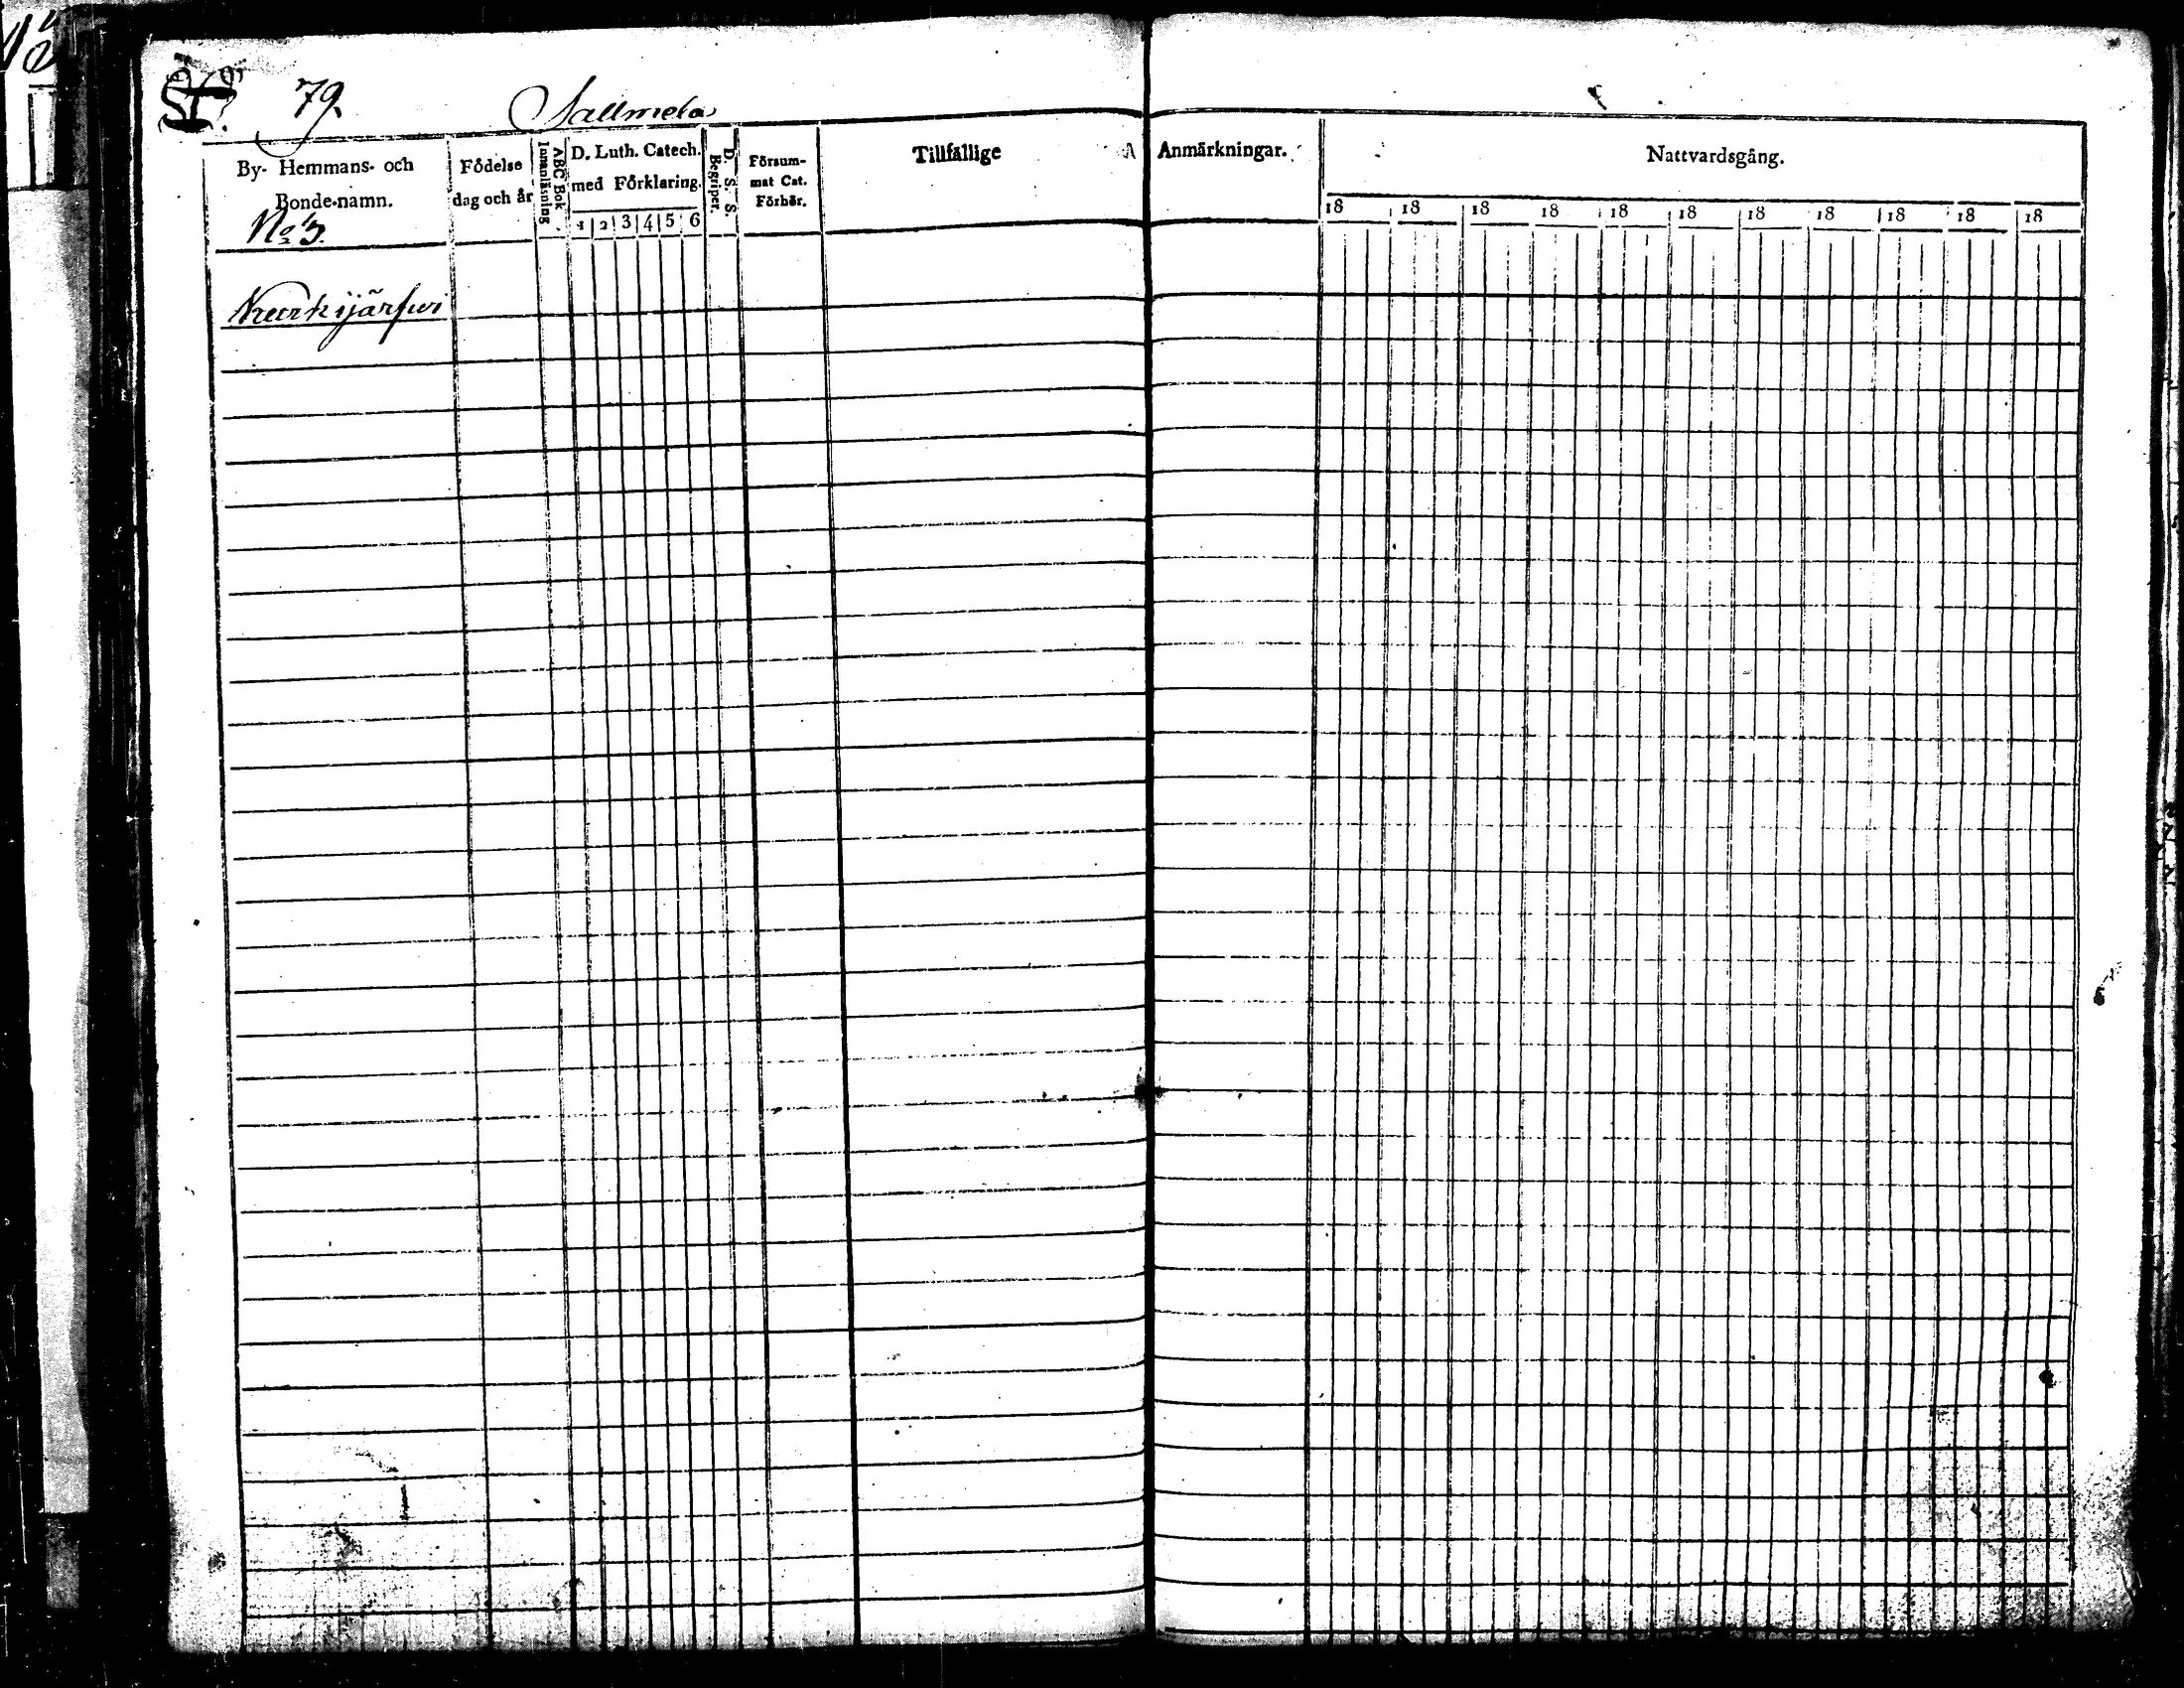 79.
Sallmela
By- Hemmans- och
Bonde-namn.
No 3.
Födelse
dag och år
ABC Bok
Innanläsning
D. Luth. Catech.
med Förklaring.
1 2 3 4 5 6
D. S. S.
Begriper.
Försum-
mat Cat.
Förhör.
Tillfällige
Anmärkningar.
Nattvardsgång.
18 18 18 18 18 18 18 18 18 18 18
Nurkijärfwi